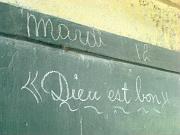 mardi 12
«Dieu est bon»